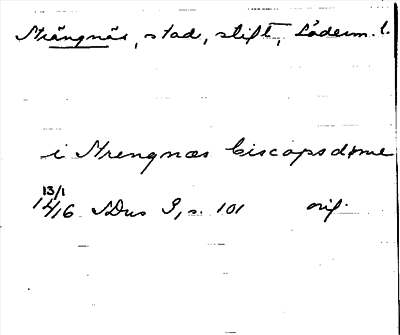 Strängnäs, stad, stift, Söderm. l.
i Strengnæs biscopsdøme
13/1
1416 SDns 3, s. 101 orig.